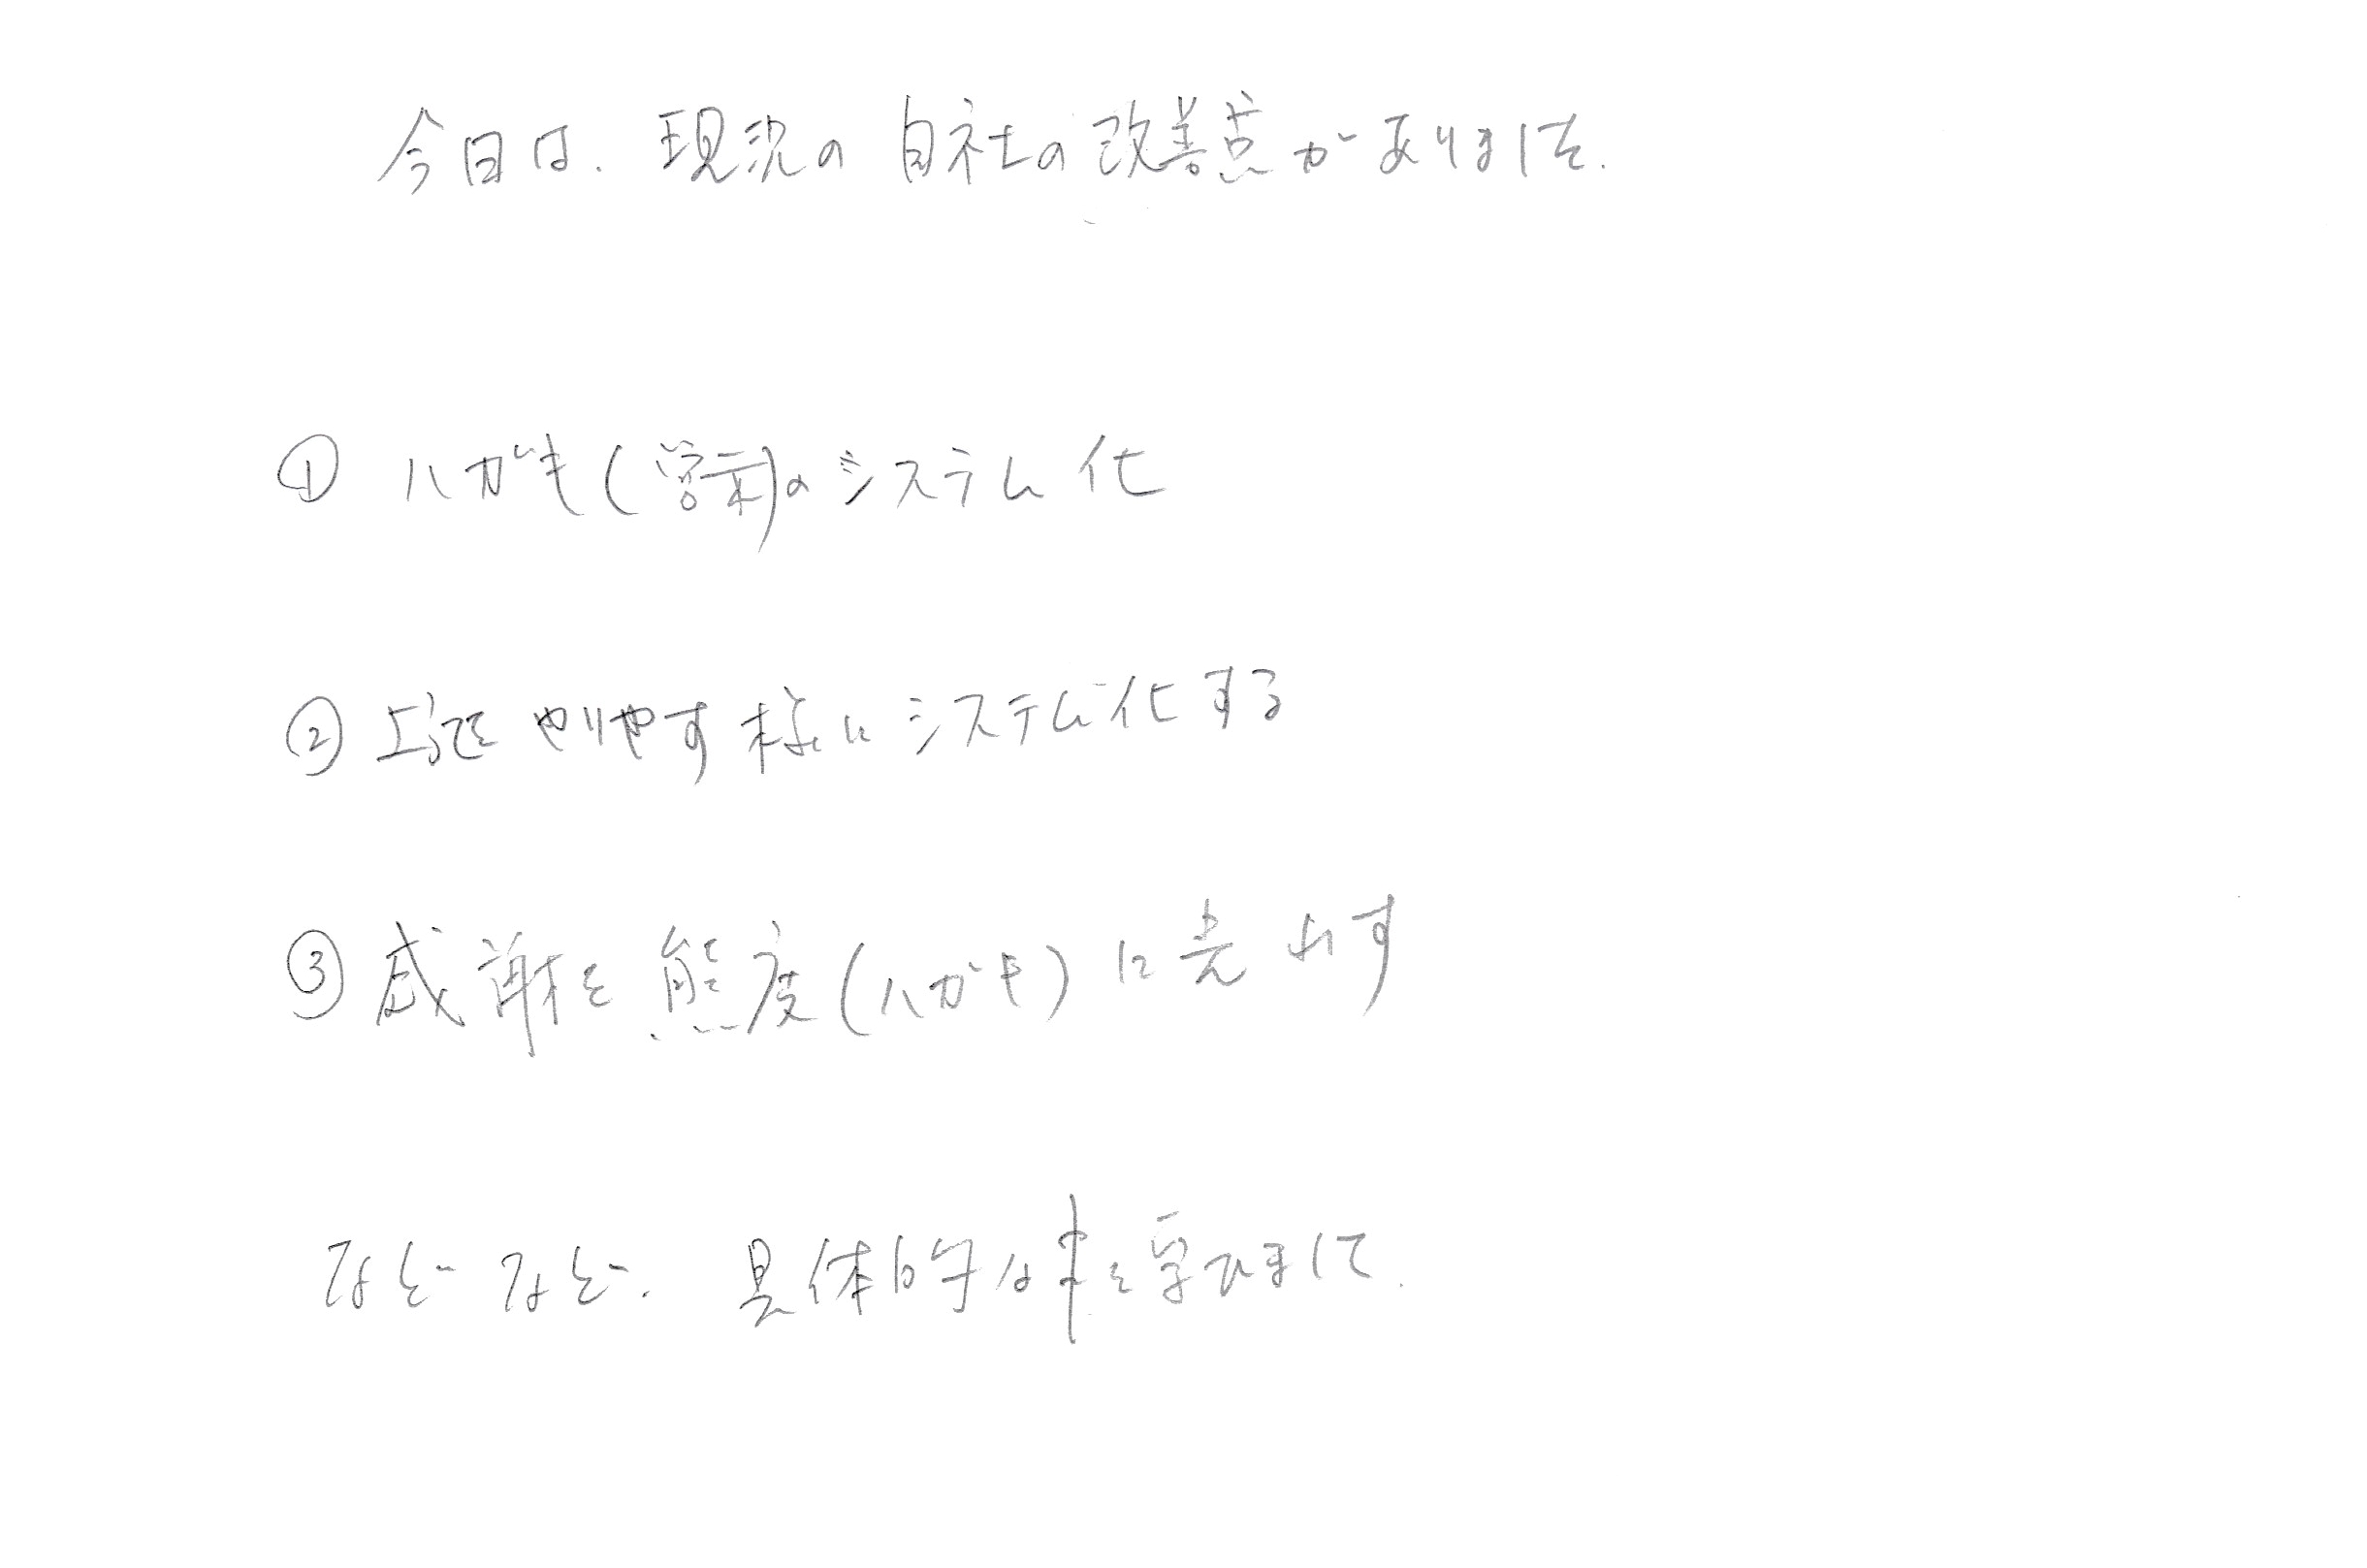 今日は、現況の自社の改善点がありました.
① ハガキ()のシステム化
② やりやす様にシステム化する
③ 感謝を態度(ハガキ)に表わす
などなど. 具体的な事を学びました.